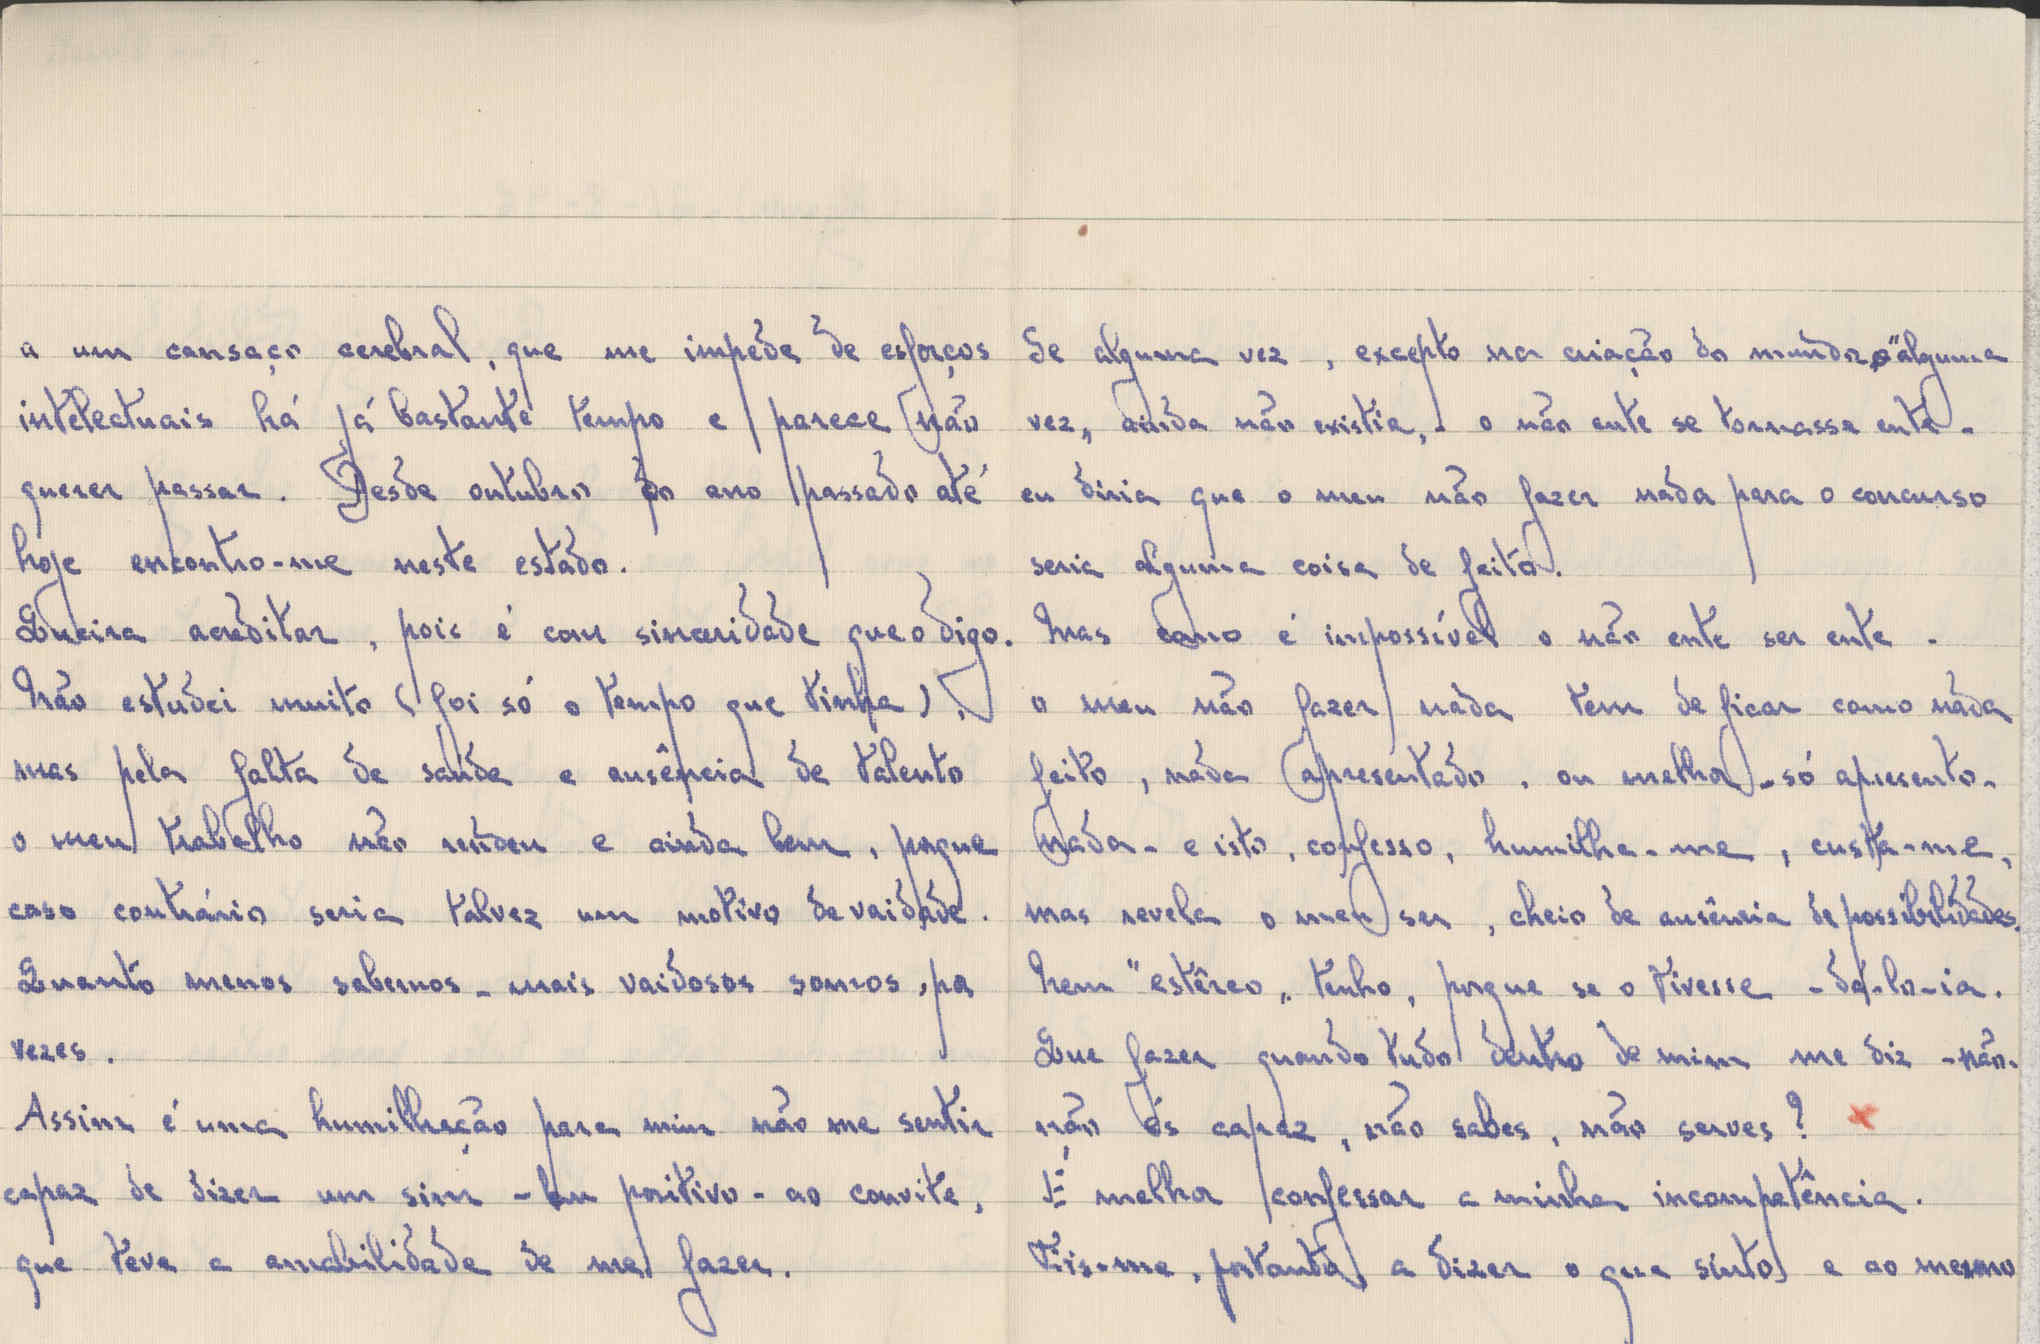 a um cansaço cerebral, que me impede de esforços
intelectuais há já bastante tempo e parece não
querer passar. Desde outubro do ano passado até
hoje encontro-me neste estado.
Queira acreditar, pois é com sinceridade que o digo.
Não estudei muito (foi só o tempo que tinha),
mas pela falta de saúde e ausência de talento
o meu trabalho não rendeu e ainda bem, porque
caso contrário seria talvez um motivo de vaidade.
Quanto menos sabemos - mais vaidosos somos, por
vezes.
Assim é uma humilhação para mim não me sentir
capaz de dizer um sim - bem positivo - ao convite,
que teve a amabilidade de me fazer.
Se alguma vez, excepto na criação do mundo, e "alguma
vez" ainda não existia, - o não ente se tornasse ente -
eu diria que o meu não fazer nada para o concurso
seria alguma coisa de feito.
Mas como é impossível o não ente ser ente -
o meu não fazer nada tem de ficar como nada
feito, nada apresentado, ou melhor - só apresento -
nada - e isto, confesso, humilha-me, custa-me,
mas revela o meu ser, cheio de ausência de possibilidades.
Nem "estêreo" tenho, porque se o tivesse - dá-lo-ia.
Que fazer quando tudo dentro de mim me diz - não -
não és capaz, não sabes, não serves?
É melhor confessar a minha incompetência.
Eis-me, portanto, a dizer o que sinto e ao mesmo